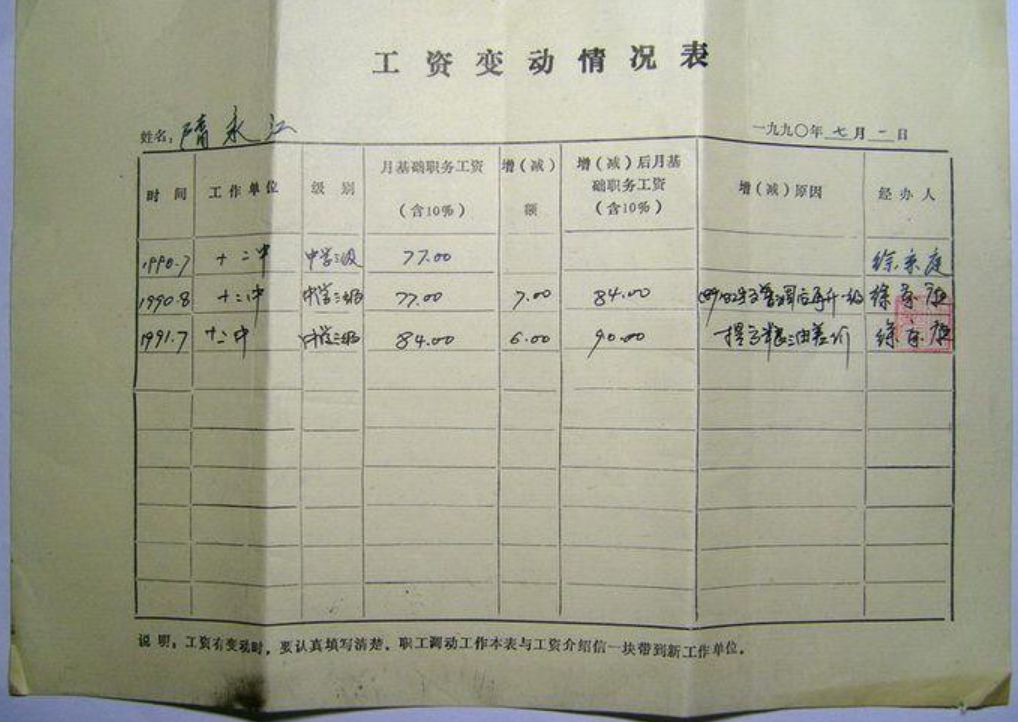 工资变动情况表
姓名：隋永江 一九九〇年七月一日
时间 工作单位 级别 月基础职务工资（含10%） 增（减）额 增（减）后月基础职务工资（含10%） 增（减）原因 经办人
1990.7 十二中 中学三级 77.00
1990.8 十二中 中学三级 77.00 7.00 84.00
1991.7 十二中 中学三级 84.00 6.00 90.00 提高粮油差价
说明：工资有变动时，要认真填写清楚。职工调动工作本表与工资介绍信一块带到新工作单位。